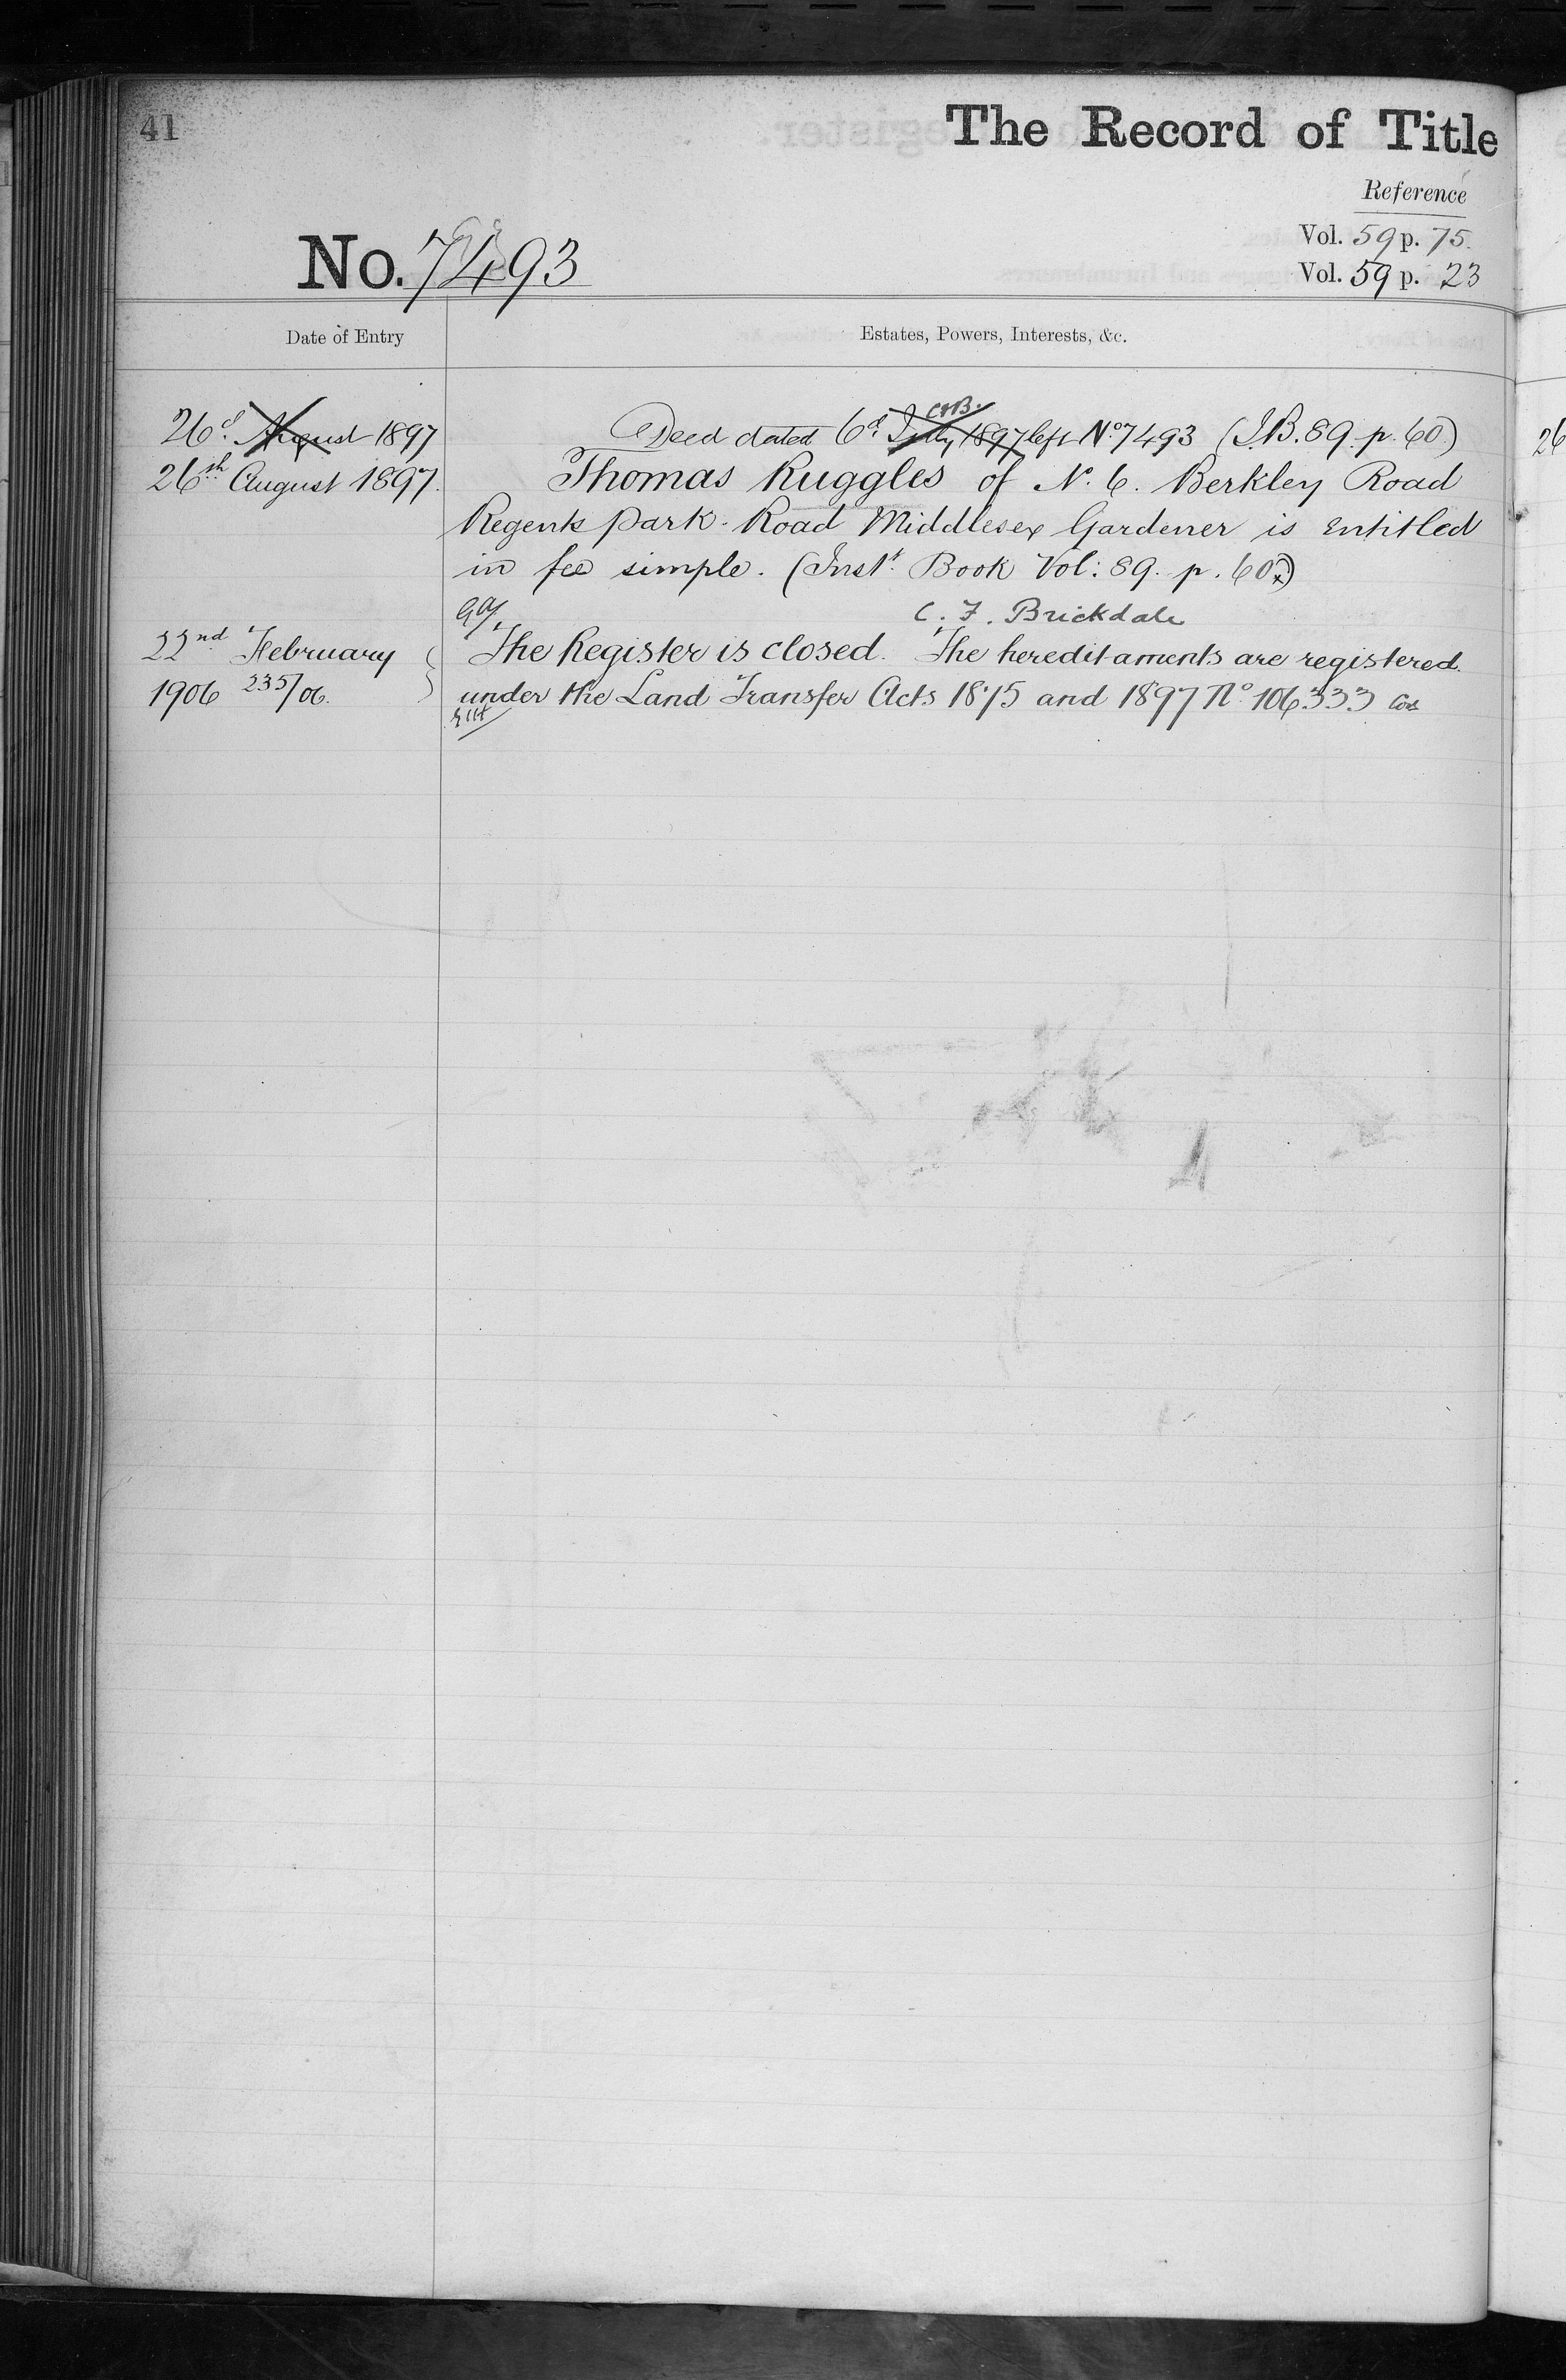 41
The Record of Title
Reference
Vol. 59 p. 75.
Vol. 59 p. 23
No. 7493
Date of Entry
Estates, Powers, Interests, &c.
26th August 1897
Deed dated 6th July 1897 left No 7493 (I.B. 89. p. 60)
26th August 1897.
Thomas Ruggles of No. 6. Berkley Road
Regents Park Road Middlesex Gardener is Entitled
in fee simple. (Inst. Book Vol: 89. p. 60.)
C. F. Brickdale
22nd February
The Register is closed. The hereditaments are registered
1906 235/06.
under the Land Transfer Acts 1875 and 1897 No 106333
26